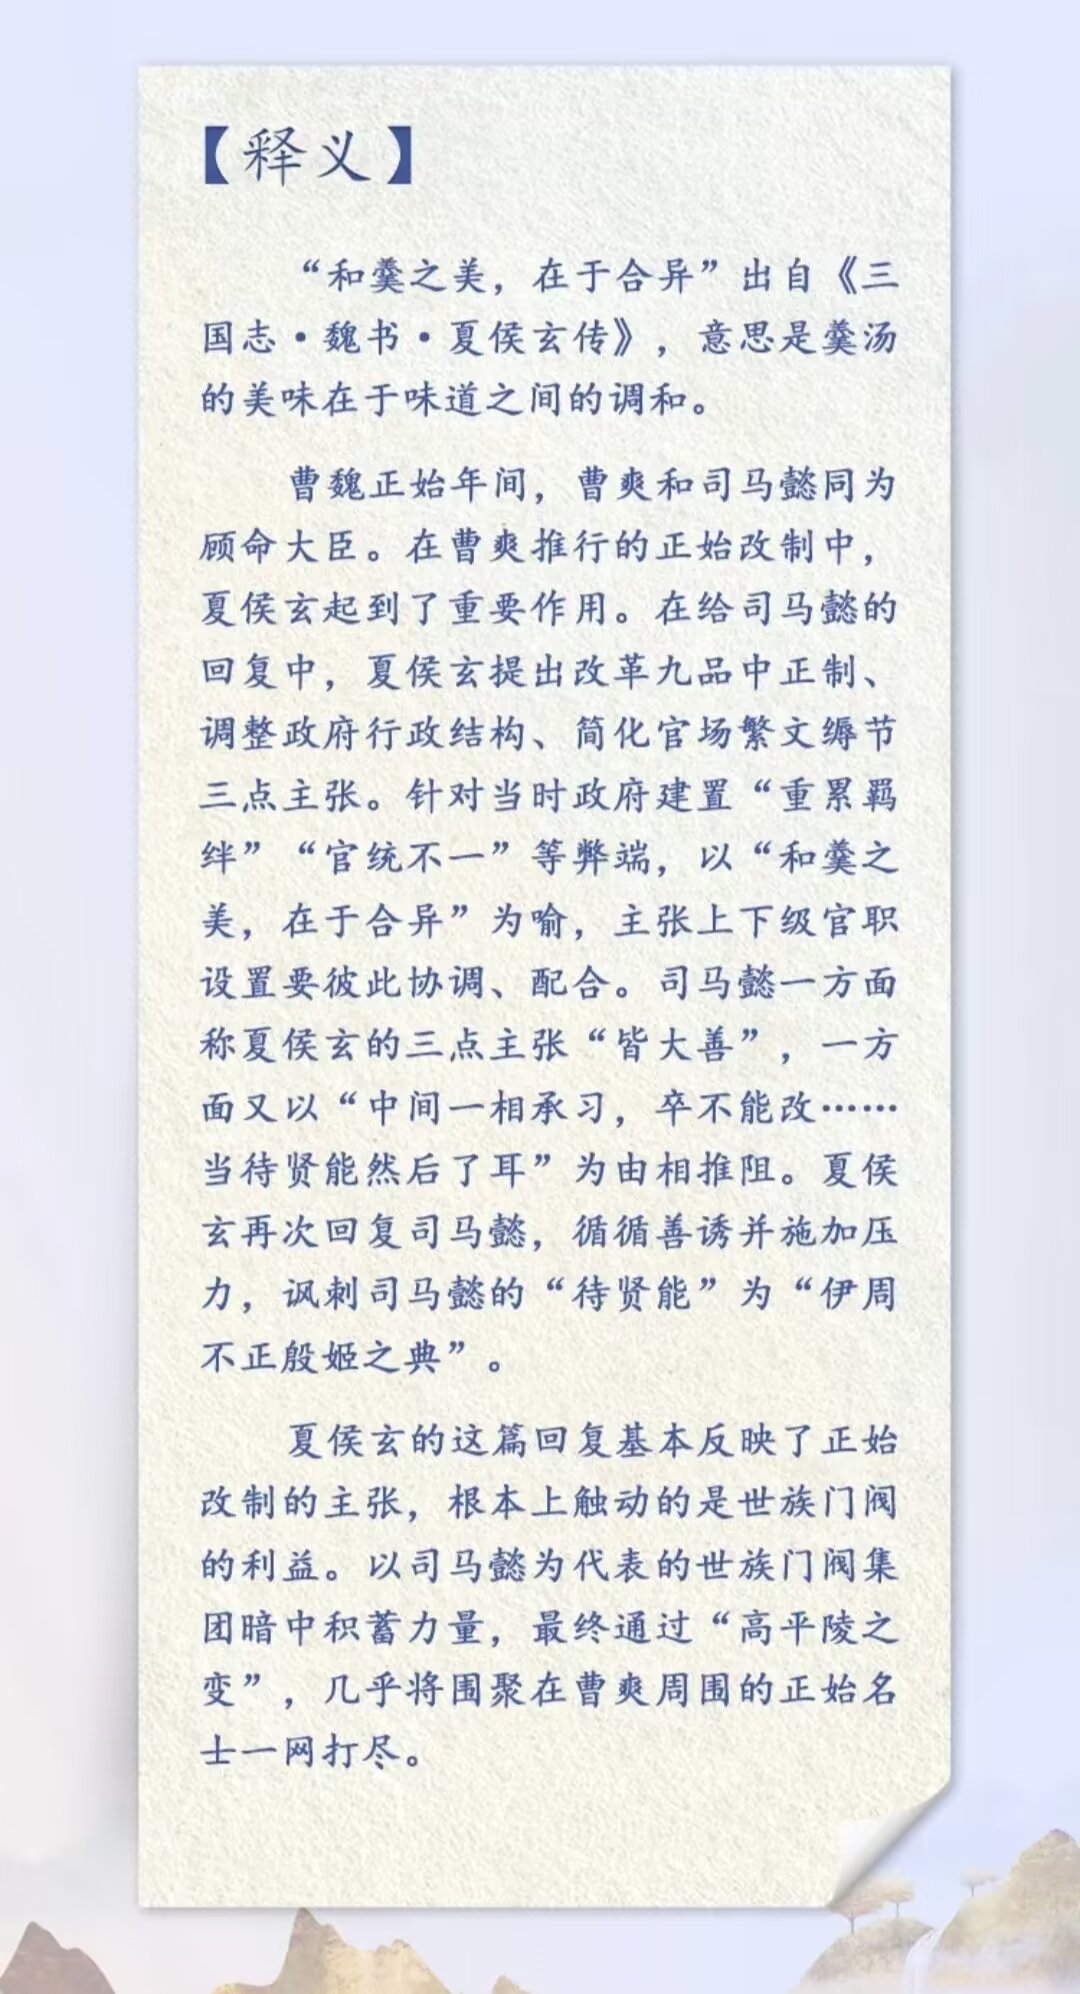 【释义】
“和羹之美，在于合异”出自《三
国志·魏书·夏侯玄传》，意思是羹汤
的美味在于味道之间的调和。
曹魏正始年间，曹爽和司马懿同为
顾命大臣。在曹爽推行的正始改制中，
夏侯玄起到了重要作用。在给司马懿的
回复中，夏侯玄提出改革九品中正制、
调整政府行政结构、简化官场繁文缛节
三点主张。针对当时政府建置“重累羁
绊”“官统不一”等弊端，以“和羹之
美，在于合异”为喻，主张上下级官职
设置要彼此协调、配合。司马懿一方面
称夏侯玄的三点主张“皆大善”，一方
面又以“中间一相承习，卒不能改……
当待贤能然后了耳”为由相推阻。夏侯
玄再次回复司马懿，循循善诱并施加压
力，讽刺司马懿的“待贤能”为“伊周
不正殷姬之典”。
夏侯玄的这篇回复基本反映了正始
改制的主张，根本上触动的是世族门阀
的利益。以司马懿为代表的世族门阀集
团暗中积蓄力量，最终通过“高平陵之
变”，几乎将围聚在曹爽周围的正始名
士一网打尽。